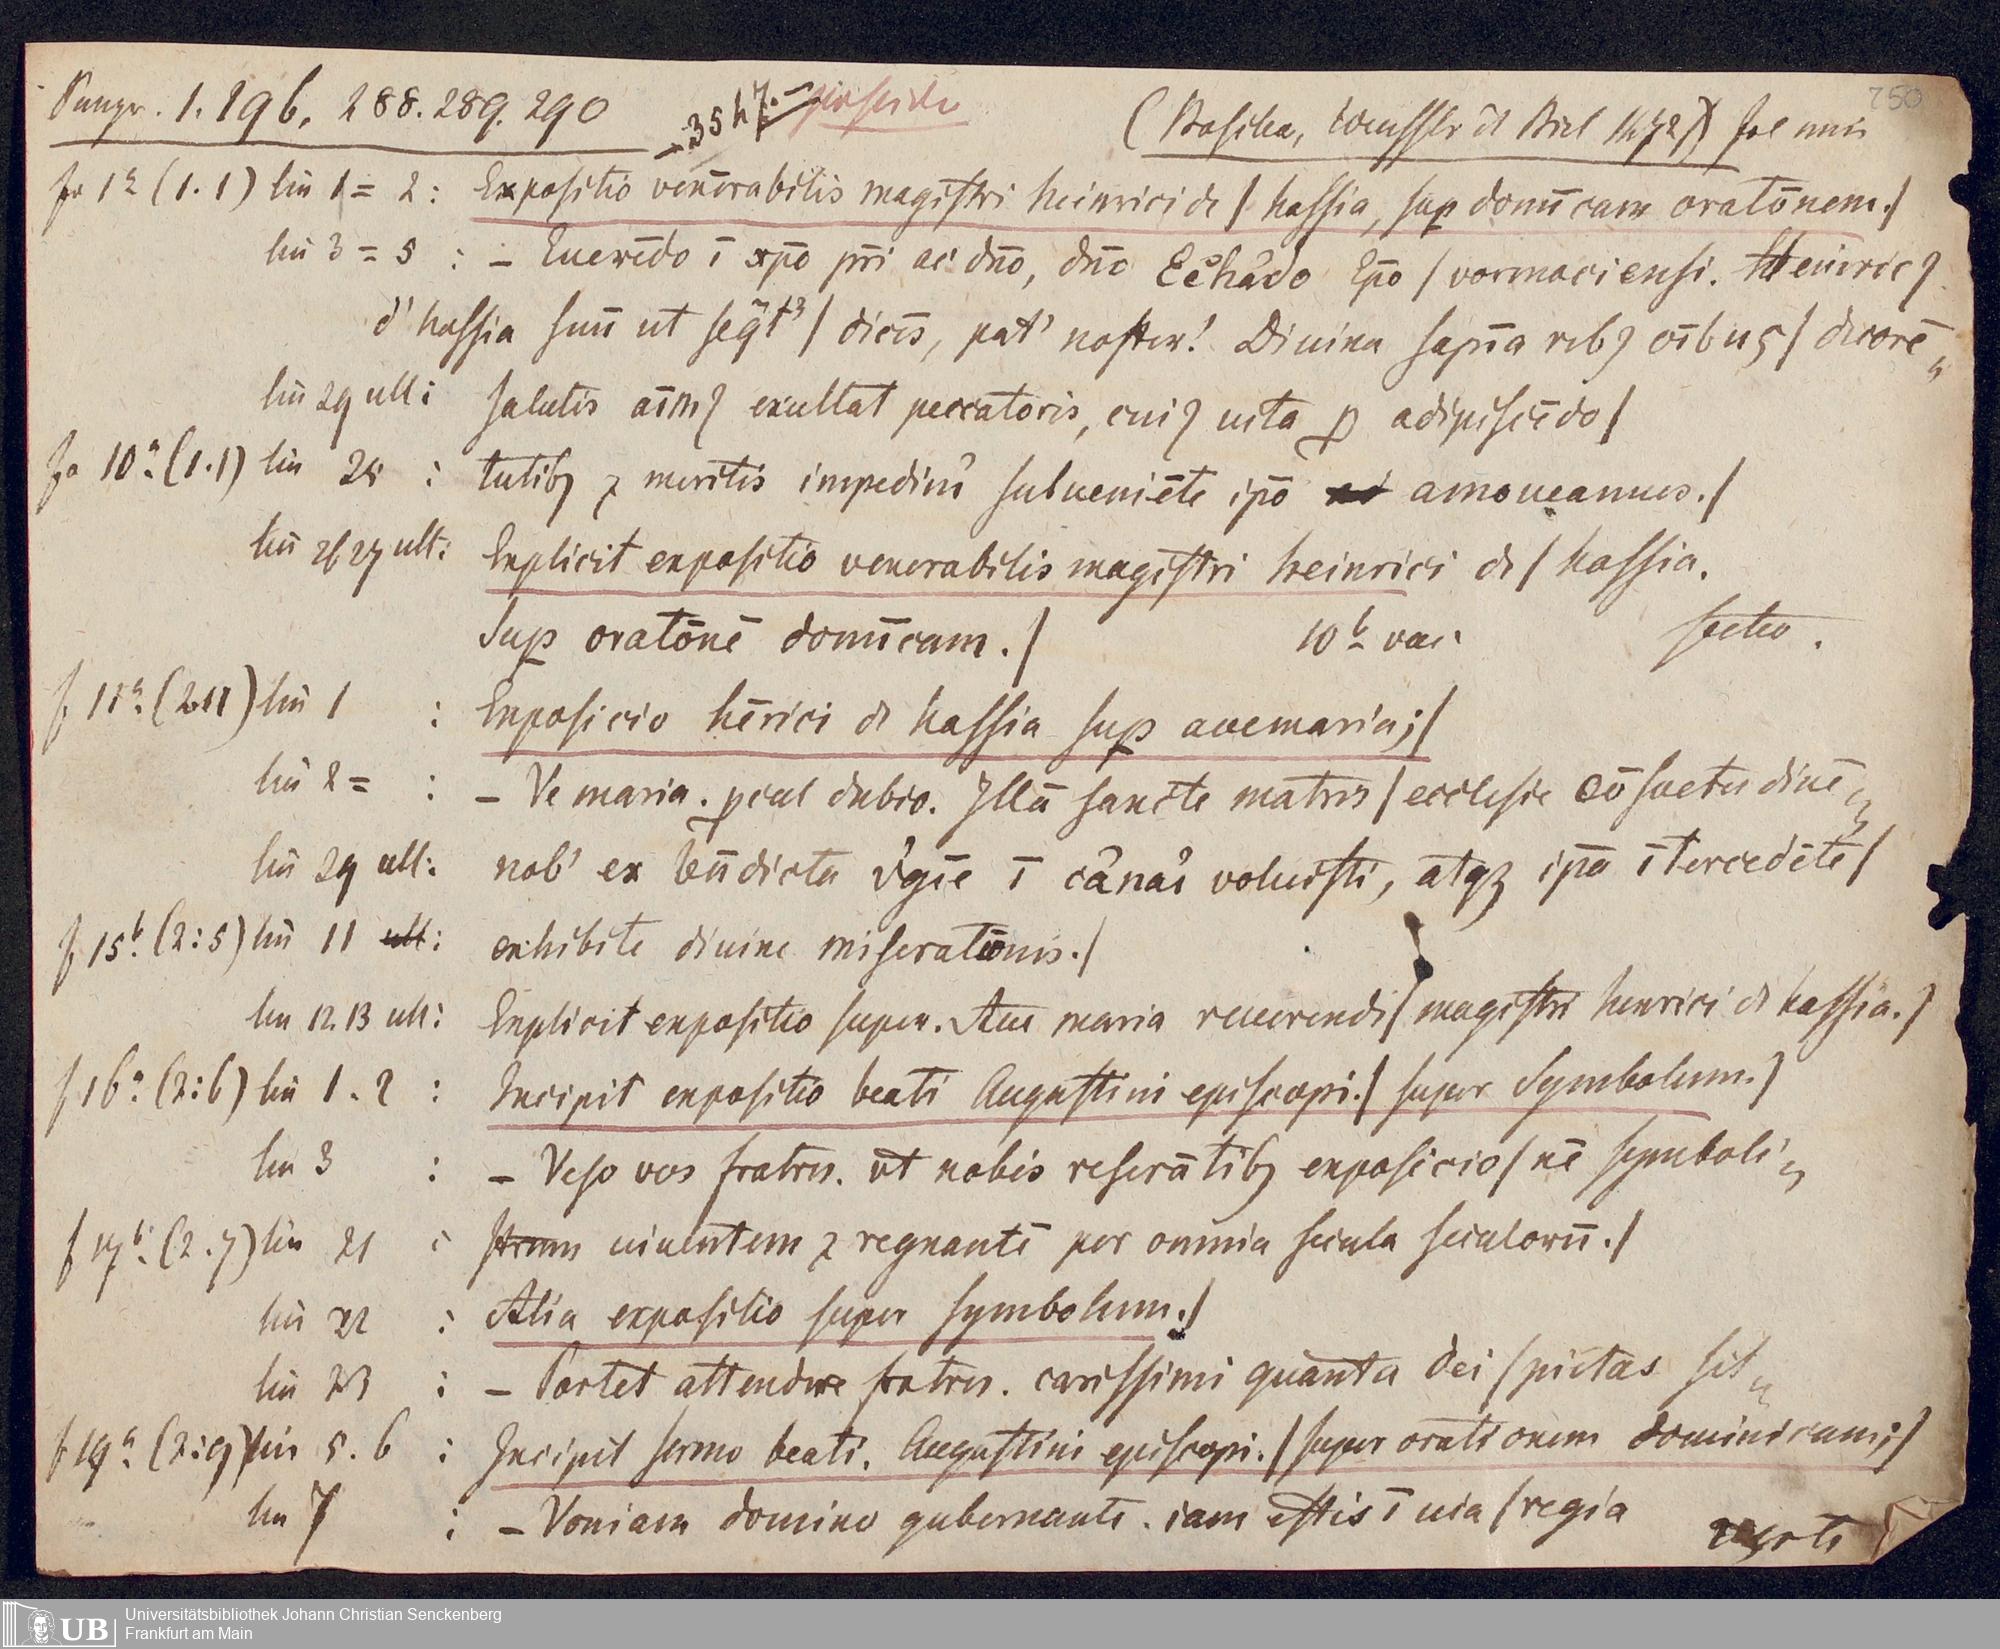 Panzer. 1. 196, 288. 289. 290
750
(Basilea, Wenssler et Biel 1472) fol min
fo 1a (1. 1) lin 1 = 2 : Expositio venērabilis magistri heinrici de / hassia, sup domīcam oratōnem./
lin 3 = 5 : – Euerēdo ī xp̄o pr̄i ac dn̄o, dn̄o Echardo Ep̄o / vormaciensi. Heinricꝫ
d' hassia suū ut / dicēs, pat' noster! Diuina sapīa rebꝫ oībus / decorē
lin 29 ult: salutis exultat peccatoris, cuiꝫ uita ꝑ adipiscēdo /
fo 10a. (1.1) lin 25 : tutibꝫ ⁊ meritis impedim̄ subueniēte ip̄o amoueamus./
lin 26 27 ult: Explicit expositio venerabilis magistri heinrici de / hassia.
Sup oratōnē domīcam./ 10b vac
f 11a. (2:1) lin 1 : Exposicio hērici de hassia sup auemaria;/
lin 2 = : – Ve maria. pcul dubio. Illā sancte matris / ecclesie cōsuetudinē
lin 29 ult: nob' ex bn̄dicta v'gīe ī voluisti, atqꝫ ip̄a ītercedēte /
f 15b. (2:5) lin 11 ult: exhibite diuine miserationis./
lin 12. 13 ult: Explicit expositio super. Aue maria reuerendi / magistri henrici de hassia./
f 16a. (2:6) lin 1. 2 : Incipit expositio beati Augustini episcopi./ super Symbolum./
lin 3 : – Veso vos fratres. ūt nobis reserātibꝫ exposicio / nē symboli
f 17b. (2.7) lin 21 : uiuentem ⁊ regnantē per omnia secula seculorū./
lin 22 : Alia expositio super symbolum./
lin 23 : – Portet attendere fratres. carissimi quanta dei / pietas sit
f 19a (2:9) lin 5. 6 : Incipit sermo beati. Augustini episcopi./ super orationem dominicam;/
lin 7 : – Voniam domino gubernante. iam estis ī uia / regia
verte
UB Universitätsbibliothek Johann Christian Senckenberg
Frankfurt am Main